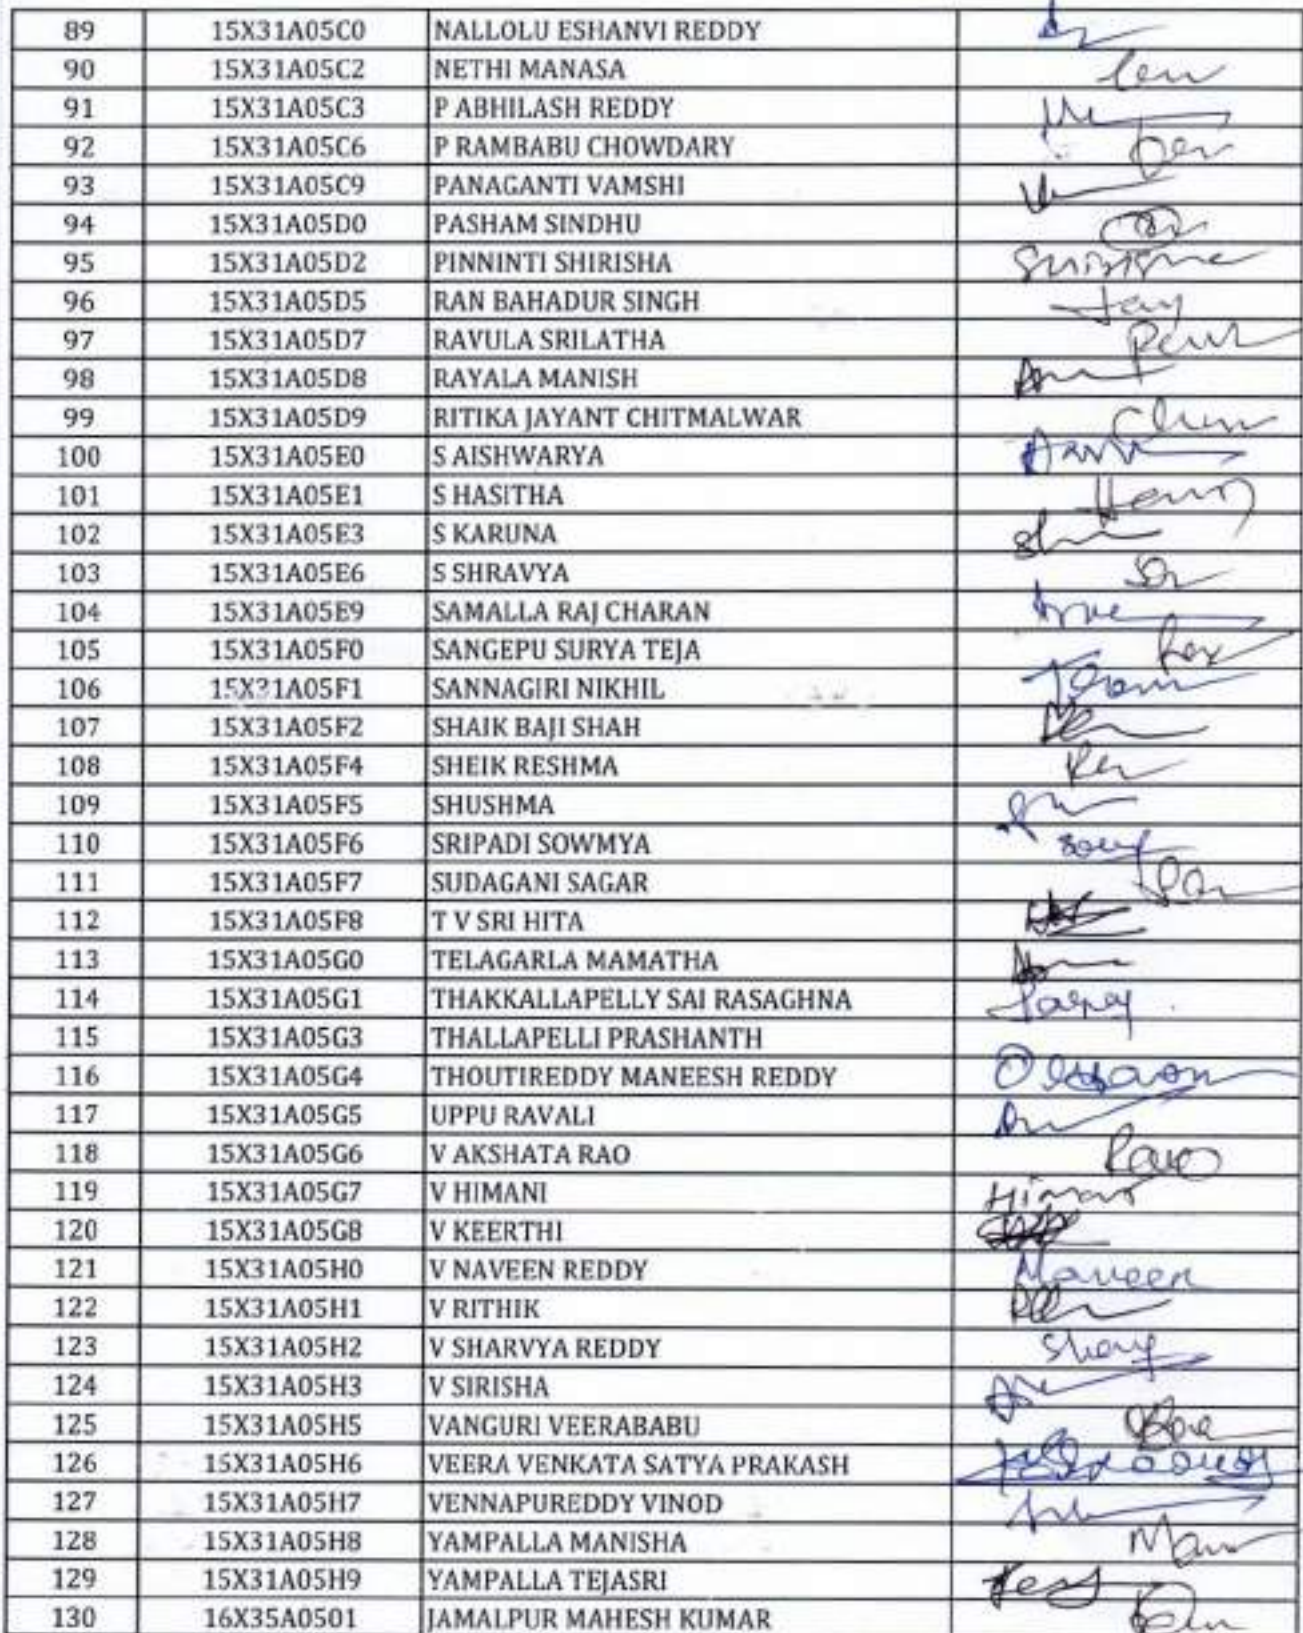 89 15X31A05C0 NALLOLU ESHANVI REDDY
90 15X31A05C2 NETHI MANASA
91 15X31A05C3 P ABHILASH REDDY
92 15X31A05C6 P RAMBABU CHOWDARY
93 15X31A05C9 PANAGANTI VAMSHI
94 15X31A05D0 PASHAM SINDHU
95 15X31A05D2 PINNINTI SHIRISHA
96 15X31A05D5 RAN BAHADUR SINGH
97 15X31A05D7 RAVULA SRILATHA
98 15X31A05D8 RAYALA MANISH
99 15X31A05D9 RITIKA JAYANT CHITMALWAR
100 15X31A05E0 S AISHWARYA
101 15X31A05E1 S HASITHA
102 15X31A05E3 S KARUNA
103 15X31A05E6 S SHRAVYA
104 15X31A05E9 SAMALLA RAJ CHARAN
105 15X31A05F0 SANGEPU SURYA TEJA
106 15X31A05F1 SANNAGIRI NIKHIL
107 15X31A05F2 SHAIK BAJI SHAH
108 15X31A05F4 SHEIK RESHMA
109 15X31A05F5 SHUSHMA
110 15X31A05F6 SRIPADI SOWMYA
111 15X31A05F7 SUDAGANI SAGAR
112 15X31A05F8 T V SRI HITA
113 15X31A05G0 TELAGARLA MAMATHA
114 15X31A05G1 THAKKALLAPELLY SAI RASAGHNA
115 15X31A05G3 THALLAPELLI PRASHANTH
116 15X31A05G4 THOUTIREDDY MANEESH REDDY
117 15X31A05G5 UPPU RAVALI
118 15X31A05G6 V AKSHATA RAO
119 15X31A05G7 V HIMANI
120 15X31A05G8 V KEERTHI
121 15X31A05H0 V NAVEEN REDDY Naveen
122 15X31A05H1 V RITHIK
123 15X31A05H2 V SHARVYA REDDY
124 15X31A05H3 V SIRISHA
125 15X31A05H5 VANGURI VEERABABU
126 15X31A05H6 VEERA VENKATA SATYA PRAKASH
127 15X31A05H7 VENNAPUREDDY VINOD
128 15X31A05H8 YAMPALLA MANISHA
129 15X31A05H9 YAMPALLA TEJASRI
130 16X35A0501 JAMALPUR MAHESH KUMAR